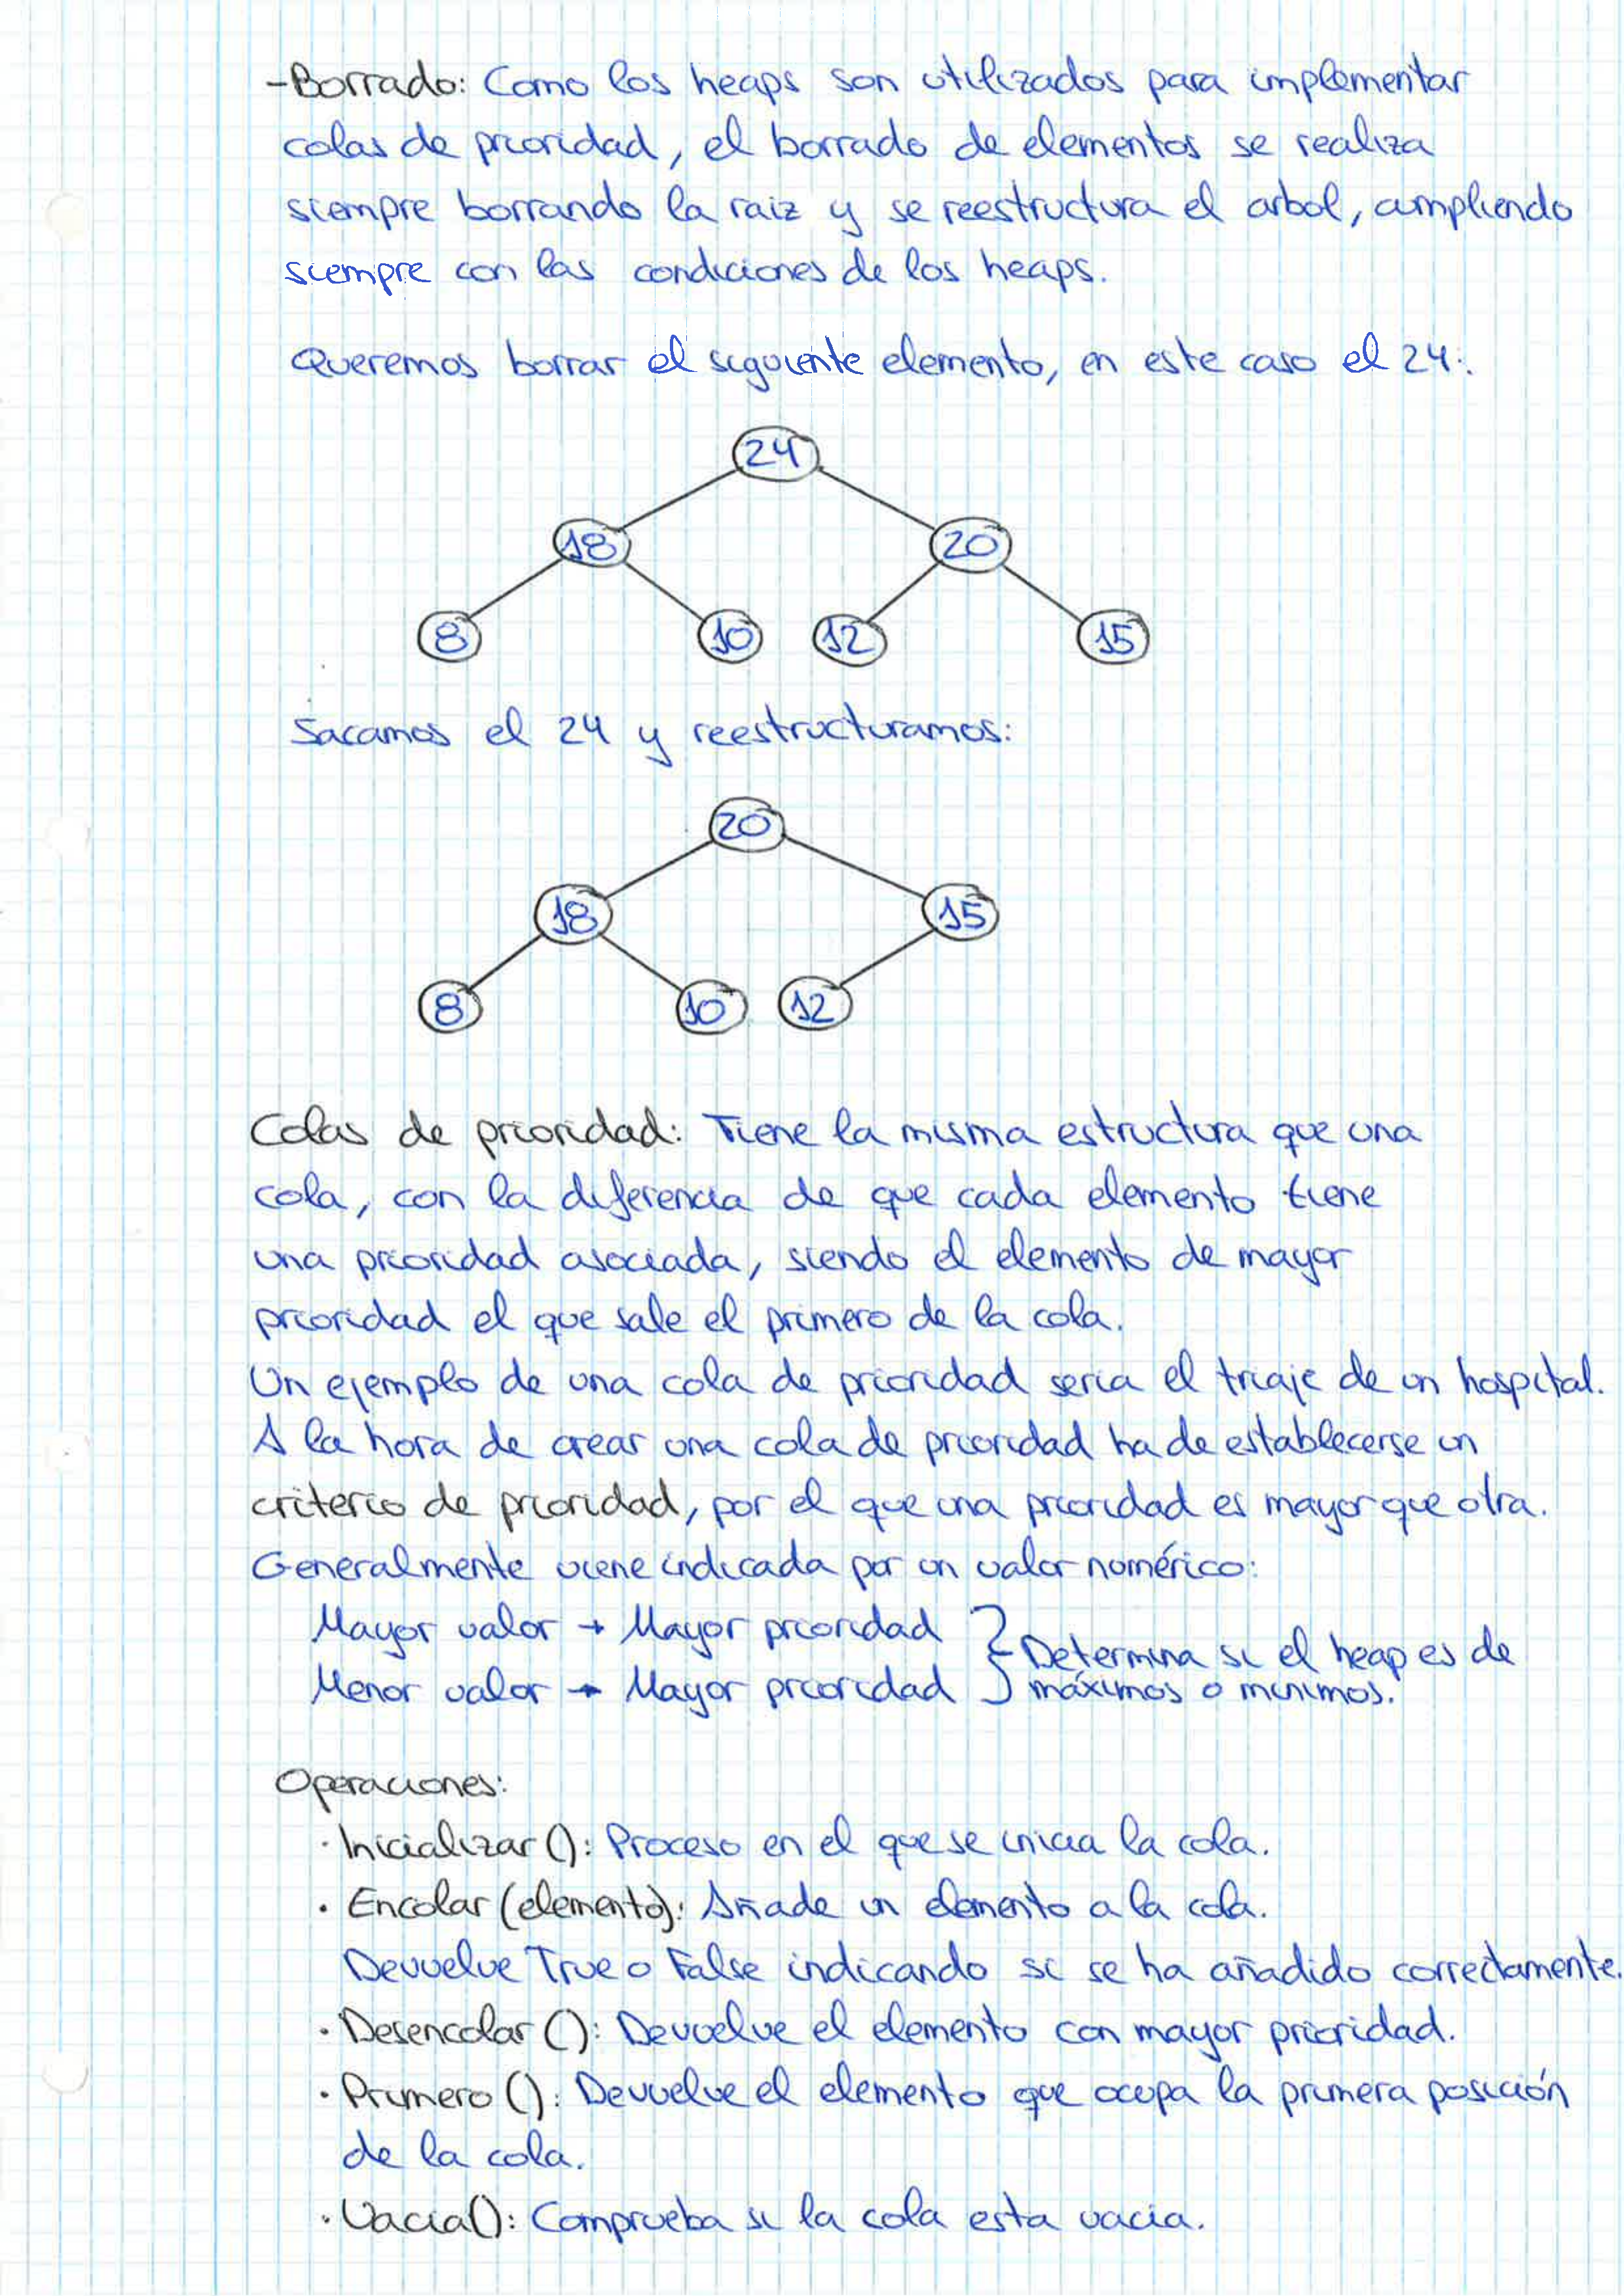 -Borrado: Como los heaps son utilizados para implementar
colas de prioridad, el borrado de elementos se realiza
siempre borrando la raiz y se reestructura el arbol, cumpliendo
siempre con las condiciones de los heaps.
Queremos borrar el siguiente elemento, en este caso el 24:
24
18 20
8 10 12 15
Sacamos el 24 y reestructuramos:
20
18 15
8 10 12
Colas de prioridad: Tiene la misma estructura que una
cola, con la diferencia de que cada elemento tiene
una prioridad asociada, siendo el elemento de mayor
prioridad el que sale el primero de la cola.
Un ejemplo de una cola de prioridad seria el triaje de un hospital.
A la hora de crear una cola de prioridad ha de establecerse un
criterio de prioridad, por el que una prioridad es mayor que otra.
Generalmente viene indicada por un valor numérico:
Mayor valor → Mayor prioridad } Determina si el heap es de
Menor valor → Mayor prioridad } máximos o minimos.
Operaciones:
· Inicializar(): Proceso en el que se inicia la cola.
· Encolar (elemento): Añade un elemento a la cola.
Devuelve True o False indicando si se ha añadido correctamente.
· Desencolar (): Devuelve el elemento con mayor prioridad.
· Primero (): Devuelve el elemento que ocupa la primera posición
de la cola.
· Vacia(): Comprueba si la cola esta vacia.